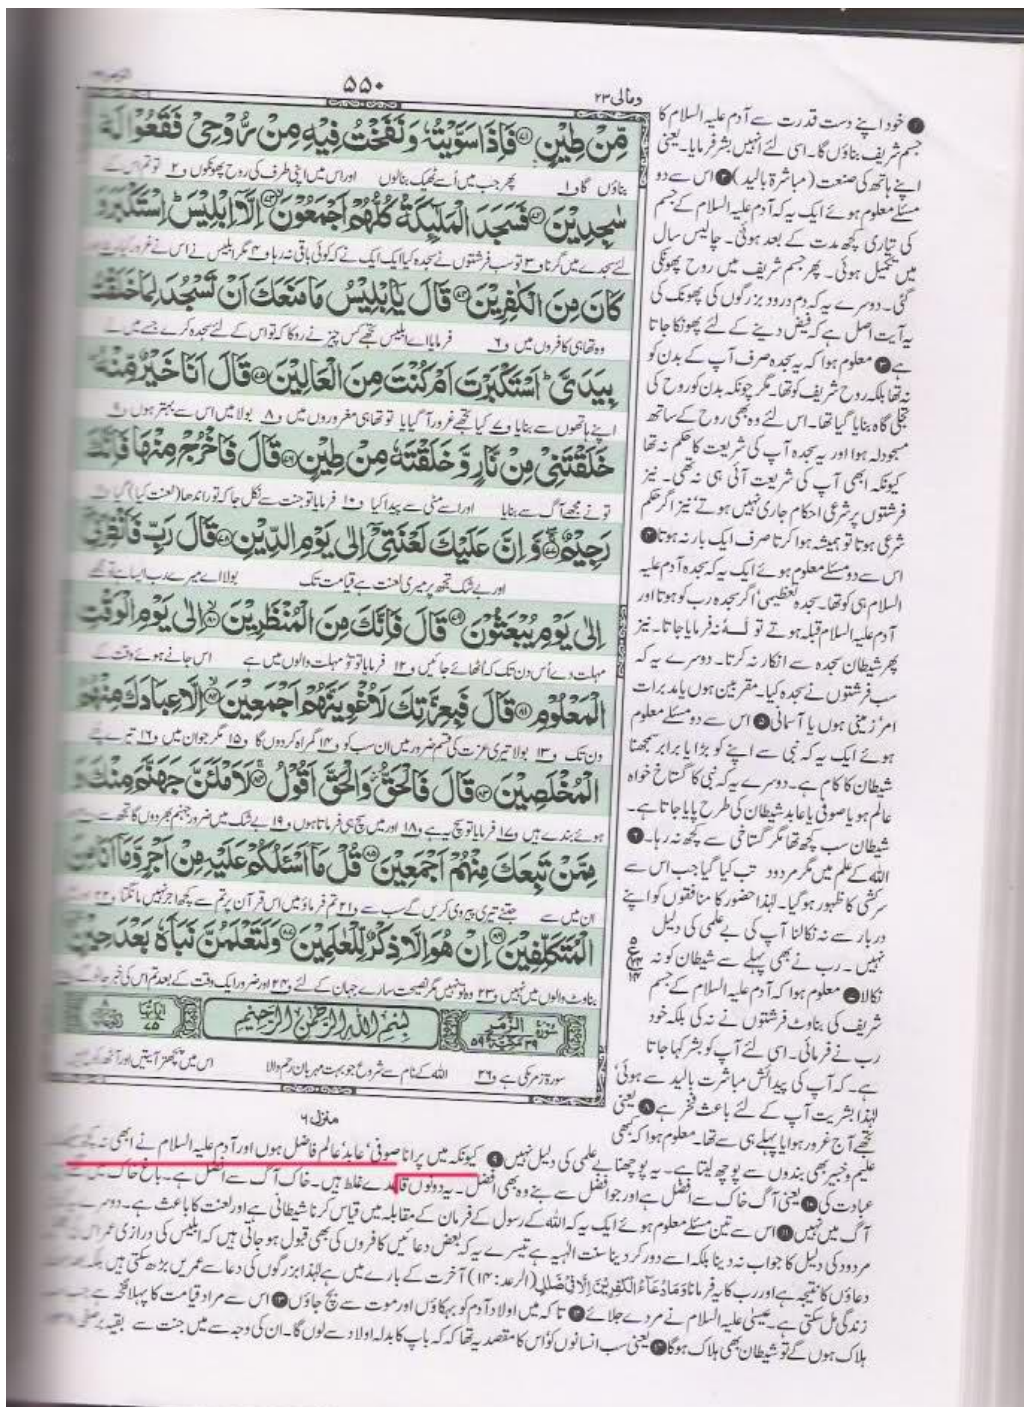 ۵۵۰
ومالی ۲۳
مِّنْ طِیْنٍ ﴿۷۱﴾ فَاِذَا سَوَّیْتُہٗ وَ نَفَخْتُ فِیْہِ مِنْ رُّوْحِیْ فَقَعُوْا لَہٗ
بناؤں گا ۱ پھر جب میں اُسے ٹھیک بنالوں اور اس میں اپنی طرف کی روح پھونکوں ۲ تو تم اس کے
سٰجِدِیْنَ ﴿۷۲﴾ فَسَجَدَ الْمَلٰٓئِکَۃُ کُلُّہُمْ اَجْمَعُوْنَ ﴿۷۳﴾ اِلَّاۤ اِبْلِیْسَ ؕ اِسْتَکْبَرَ وَ
لئے سجدے میں گرنا ۳ تو سب فرشتوں نے سجدہ کیا ایک ایک نے کہ کوئی باقی نہ رہا ۴ مگر ابلیس نے اس نے غرور کیا
کَانَ مِنَ الْکٰفِرِیْنَ ﴿۷۴﴾ قَالَ یٰۤاِبْلِیْسُ مَا مَنَعَکَ اَنْ تَسْجُدَ لِمَا خَلَقْتُ
وہ تھا ہی کافروں میں ۶ فرمایا اے ابلیس تجھے کس چیز نے روکا کہ تو اس کے لئے سجدہ کرے جسے میں نے
بِیَدَیَّ ؕ اَسْتَکْبَرْتَ اَمْ کُنْتَ مِنَ الْعَالِیْنَ ﴿۷۵﴾ قَالَ اَنَا خَیْرٌ مِّنْہُ ؕ
اپنے ہاتھوں سے بنایا ۷ کیا تجھے غرور آ گیا یا تو تھا ہی مغروروں میں ۸ بولا میں اس سے بہتر ہوں ۹
خَلَقْتَنِیْ مِنْ نَّارٍ وَّ خَلَقْتَہٗ مِنْ طِیْنٍ ﴿۷۶﴾ قَالَ فَاخْرُجْ مِنْہَا فَاِنَّکَ
تو نے مجھے آگ سے بنایا اور اسے مٹی سے پیدا کیا ۱۰ فرمایا تو جنت سے نکل جا کہ تو راندھا (لعنت کیا) گیا
رَجِیْمٌ ﴿۷۷﴾ وَّ اِنَّ عَلَیْکَ لَعْنَتِیْۤ اِلٰی یَوْمِ الدِّیْنِ ﴿۷۸﴾ قَالَ رَبِّ فَاَنْظِرْنِیْۤ
اور بے شک تجھ پر میری لعنت ہے قیامت تک بولا اے میرے رب ایسا ہے تو مجھے
اِلٰی یَوْمِ یُبْعَثُوْنَ ﴿۷۹﴾ قَالَ فَاِنَّکَ مِنَ الْمُنْظَرِیْنَ ﴿۸۰﴾ اِلٰی یَوْمِ الْوَقْتِ
مہلت دے اُس دن تک کہ اُٹھائے جائیں ۱۲ فرمایا تو تو مہلت والوں میں ہے اس جانے ہوئے وقت کے
الْمَعْلُوْمِ ﴿۸۱﴾ قَالَ فَبِعِزَّتِکَ لَاُغْوِیَنَّہُمْ اَجْمَعِیْنَ ﴿۸۲﴾ اِلَّا عِبَادَکَ مِنْہُمُ
دن تک ۱۳ بولا تیری عزت کی قسم ضرور میں ان سب کو ۱۴ گمراہ کردوں گا ۱۵ مگر جو ان میں ۱۶ تیرے چنے
الْمُخْلَصِیْنَ ﴿۸۳﴾ قَالَ فَالْحَقُّ ۫ وَ الْحَقَّ اَقُوْلُ ﴿۸۴﴾ لَاَمْلَـَٔنَّ جَہَنَّمَ مِنْکَ وَ
ہوئے بندے ہیں ۱۷ فرمایا تو سچ یہ ہے ۱۸ اور میں سچ ہی فرماتا ہوں ۱۹ بے شک میں ضرور جہنم بھردوں گا تجھ سے
مِمَّنْ تَبِعَکَ مِنْہُمْ اَجْمَعِیْنَ ﴿۸۵﴾ قُلْ مَاۤ اَسْـَٔلُکُمْ عَلَیْہِ مِنْ اَجْرٍ وَّ مَاۤ اَنَا مِنَ
ان میں سے جتنے تیری پیروی کریں گے سب سے ۲۱ تم فرماؤ میں اس قرآن پر تم سے کچھ اجر نہیں مانگتا ۲۲
الْمُتَکَلِّفِیْنَ ﴿۸۶﴾ اِنْ ہُوَ اِلَّا ذِکْرٌ لِّلْعٰلَمِیْنَ ﴿۸۷﴾ وَ لَتَعْلَمُنَّ نَبَاَہٗ بَعْدَ حِیْنٍ
بناوٹ والوں میں نہیں ۲۳ وہ تو نہیں مگر نصیحت سارے جہان کے لئے ۲۴ اور ضرور ایک وقت کے بعد تم اس کی خبر جانو گے
سُوْرَۃُ الزُّمَر ۳۹ مَکِّیَّۃٌ ۵۹ بِسْمِ اللہِ الرَّحْمٰنِ الرَّحِیْمِ اٰیاتہا ۷۵
سورۃ زمر مکی ہے ۲۶ اللہ کے نام سے شروع جو بہت مہربان رحم والا اس میں پچھتر آیتیں اور آٹھ رکوع ہیں
منزل ۶
۱ خود اپنے دست قدرت سے آدم علیہ السلام کا
جسم شریف بناؤں گا۔ اسی لئے انہیں بشر فرمایا۔ یعنی
اپنے ہاتھ کی صنعت (مباشرۃ بالید) ۲ اس سے دو
مسئلے معلوم ہوئے ایک یہ کہ آدم علیہ السلام کے جسم
کی تیاری کچھ مدت کے بعد ہوئی۔ چالیس سال
میں تکمیل ہوئی۔ پھر جسم شریف میں روح پھونکی
گئی۔ دوسرے یہ کہ دم درود بزرگوں کی پھونک کی
یہ آیت اصل ہے کہ فیض دینے کے لئے پھونکا جاتا
ہے ۳ معلوم ہوا کہ یہ سجدہ صرف آپ کے بدن کو
نہ تھا بلکہ روح شریف کو تھا۔ مگر چونکہ بدن کو روح کی
تجلی گاہ بنایا گیا تھا۔ اس لئے وہ بھی روح کے ساتھ
مسجود لہ ہوا اور یہ سجدہ آپ کی شریعت کا حکم نہ تھا
کیونکہ ابھی آپ کی شریعت آئی ہی نہ تھی۔ نیز
فرشتوں پر شرعی احکام جاری نہیں ہوتے نیز اگر حکم
شرعی ہوتا تو ہمیشہ ہوا کرتا صرف ایک بار نہ ہوتا ۴
اس سے دو مسئلے معلوم ہوئے ایک یہ کہ سجدہ آدم علیہ
السلام ہی کو تھا۔ سجدہ تعظیمی اگر سجدہ رب کو ہوتا اور
آدم علیہ السلام قبلہ ہوتے تو لَہٗ نہ فرمایا جاتا۔ نیز
پھر شیطان سجدہ سے انکار نہ کرتا۔ دوسرے یہ کہ
سب فرشتوں نے سجدہ کیا۔ مقربین ہوں یا مدبرات
امر زمینی ہوں یا آسمانی ۵ اس سے دو مسئلے معلوم
ہوئے ایک یہ کہ نبی سے اپنے کو بڑا یا برابر سمجھنا
شیطان کا کام ہے۔ دوسرے یہ کہ نبی کا گستاخ خواہ
عالم ہو یا صوفی یا عابد شیطان کی طرح پایا جاتا ہے۔
شیطان سب کچھ تھا مگر گستاخی سے کچھ نہ رہا۔ ۶
اللہ کے علم میں مگر مردود تب کیا گیا جب اس سے
سرکشی کا ظہور ہوگیا۔ لہٰذا حضور کا منافقوں کو اپنے
دربار سے نہ نکالنا آپ کی بے علمی کی دلیل
نہیں۔ رب نے بھی پہلے سے شیطان کو نہ
نکالا ۷ معلوم ہوا کہ آدم علیہ السلام کے جسم
شریف کی بناوٹ فرشتوں نے نہ کی بلکہ خود
رب نے فرمائی۔ اسی لئے آپ کو بشر کہا جاتا
ہے۔ کہ آپ کی پیدائش مباشرت بالید سے ہوئی
لہٰذا بشریت آپ کے لئے باعث فخر ہے ۸ یعنی
تجھے آج غرور ہوا یا پہلے ہی سے تھا۔ معلوم ہوا کہ کبھی
علیم و خبیر بھی بندوں سے پوچھ لیتا ہے۔ یہ پوچھنا بے علمی کی دلیل نہیں ۹ کیونکہ میں پرانا صوفی عابد عالم فاضل ہوں اور آدم علیہ السلام نے ابھی نہ کچھ
عبادت کی ۱۰ یعنی آگ خاک سے افضل ہے اور جو افضل سے بنے وہ بھی افضل۔ یہ دونوں قاعدے غلط ہیں۔ خاک آگ سے افضل ہے۔ باغ خاک میں
آگ میں نہیں ۱۱ اس سے تین مسئلے معلوم ہوئے ایک یہ کہ اللہ کے رسول کے فرمان کے مقابلہ میں قیاس کرنا شیطانی ہے اور لعنت کا باعث ہے۔ دوسرے یہ
مردود کی دلیل کا جواب نہ دینا بلکہ اسے دور کر دینا سنت الٰہیہ ہے تیسرے یہ کہ بعض دعائیں کافروں کی بھی قبول ہو جاتی ہیں کہ ابلیس کی درازی عمر اس کی
دعاؤں کا نتیجہ ہے اور رب کا یہ فرمانا وَمَا دُعَآءُ الْکٰفِرِیْنَ اِلَّا فِیْ ضَلٰلٍ (الرعد: ۱۴) آخرت کے بارے میں ہے لہٰذا بزرگوں کی دعا سے عمریں بڑھ سکتی ہیں بلکہ
زندگی مل سکتی ہے۔ عیسیٰ علیہ السلام نے مردے جلائے ۱۲ تا کہ میں اولاد آدم کو بہکاؤں اور موت سے بچ جاؤں ۱۳ اس سے مراد قیامت کا پہلا نفخہ ہے جب
ہلاک ہوں گے تو شیطان بھی ہلاک ہوگا ۱۴ یعنی سب انسانوں کو اُس کا مقصد یہ تھا کہ کہ باپ کا بدلہ اولاد سے لوں گا۔ ان کی وجہ سے میں جنت سے بقیہ بر صفحہ